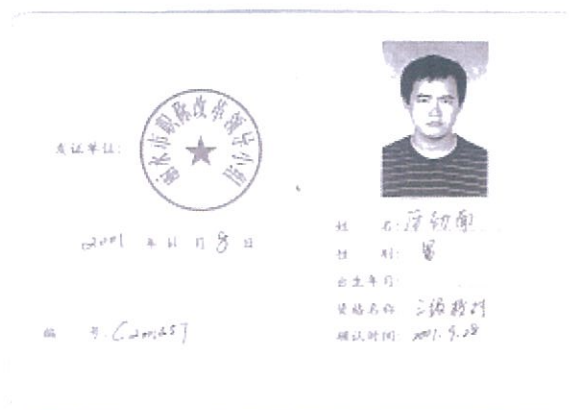 发证单位:
丽水市职称改革领导小组
2001 年 11 月 8 日
编 号:
姓 名:
性 别: 男
出生年月:
资格名称 三级校对
确认时间: 2001.9.28